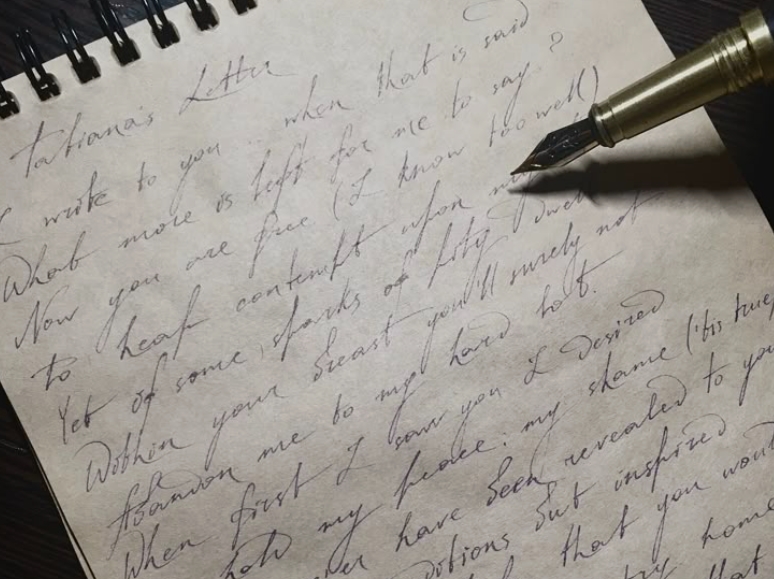 Tatiana's Letter
I write to you... when that is said
What more is left for me to say?
Now you are free (I know too well)
to heap contempt upon
Yet if some sparks of pity dwell
Within your breast you'll surely not
Abandon me to my hard lot.
When first I saw you I desired
hold my peace: my shame ('tis true
have been revealed to you
but inspired
that you would
home
that